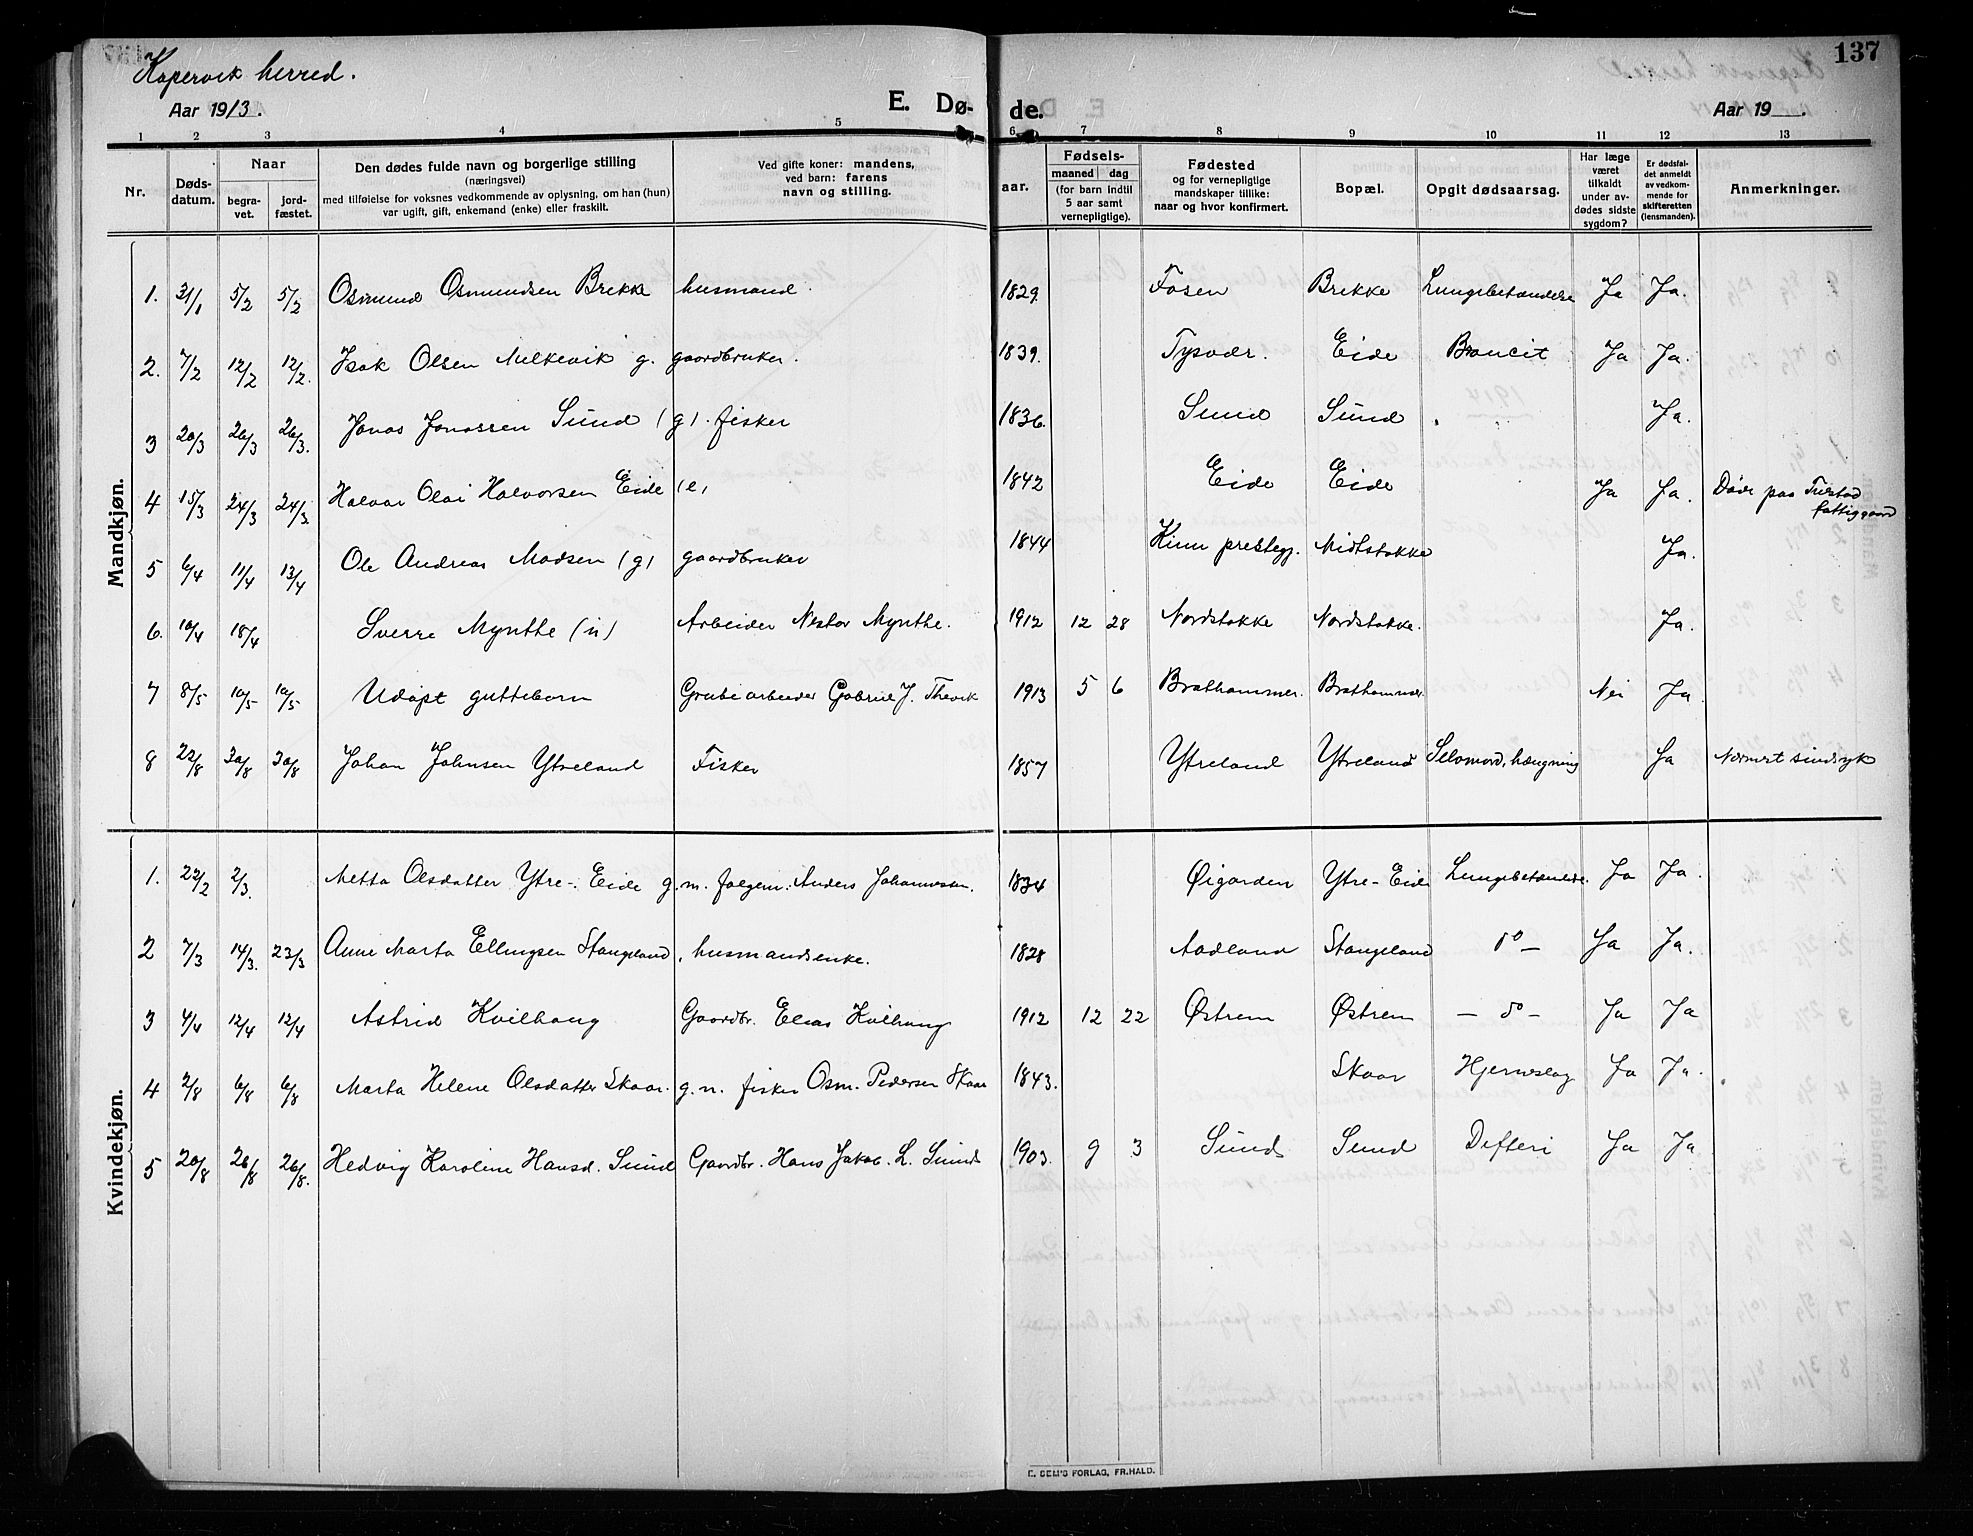 Kopervik herred.
137
Aar 1913.
E. Dø- de.
Aar 19 .
1 2 3 4 5 6 7 8 9 10 11 12 13
Nr.
Døds-datum.
Naar
begra-vet.
jord-fæstet.
Den dødes fulde navn og borgerlige stilling
(næringsvei)
med tilføielse for voksnes vedkommende av oplysning, om han (hun)
var ugift, gift, enkemand (enke) eller fraskilt.
Ved gifte koner: mandens,
ved barn: farens
navn og stilling.
aar.
Fødsels-
maaned dag
(for barn indtil
5 aar samt
vernepligtige).
Fødested
og for vernepligtige
mandskaper tillike:
naar og hvor konfirmert.
Bopæl.
Opgit dødsaarsag.
Har læge
været
tilkaldt
under av-
dødes sidste
sygdom?
Er dødsfal-
det anmeldt
av vedkom-
mende for
skifteretten
(lensmanden).
Anmerkninger.
Mandkjøn.
1. 31/1 5/2 5/2 Osmund Osmundsen Brekke husmand. 1829. Fosen Brekke Lungebetændelse Ja Ja.
2. 7/2 12/2 12/2. Isak Olsen Melkevik g. gaardbruker. 1839. Tysvær. Eide Broncit Ja Ja.
3 20/3 26/3 26/3. Jonas Jonassen Sund (g). fisker 1836. Sund Sund Ja.
4 15/3 24/3 24/3 Halvor Olai Halvorsen Eide (e) 1842 Eide Eide Ja Ja. Døde paa
fattiggaard
5 6/4 11/4 13/4 Ole Andreas Madsen (g) gaardbruker 1844 Kinn prestegj. Midtstokke Ja.
6. 10/4 18/4 Sverre Mynthe (u) Arbeider Nestor Mynthe. 1912 12 28 Nordstokke Nordstokke. Ja.
7 8/5 10/5 10/5 Udøpt guttebarn Grubearbeider Gabriel J. 1913 5 6 Brathammer. Brathammer Nei Ja
8 22/8 30/8 30/8 Johan Johnsen Ytreland Fisker 1857 Ytreland Ytreland Selvmord, hængning Ja Nærmest sindsyk
Kvindekjøn.
1. 22/2 2/3. Metta Olsdatter Ytre-Eide g. m. følgem. Anders Johannessen. 1834 Øigarden Ytre-Eide Lungebetændelse. Ja Ja.
2 7/3 14/3. 23/3 Anne Marta Ellingsen Stangeland, husmandsenke. 1828 Aadland Stangeland do — Ja Ja.
3 4/4 12/4 12/4 Astrid Kvilhaug Gaardbr. Elias Kvilhaug 1912 12 22 Østrem Østrem — do — Ja Ja
4 2/8 6/8 6/8 Marta Helene Olsdatter Skaar. g. m. fisker Osm. Pedersen Skaar 1843. Skaar Hjerneslag Ja Ja.
5 20/8 26/8 26/8. Hedvig Karoline Hansd. Sund Gaardbr. Hans Jakob. L. Sund 1903. 9 3 Sund Sund Difteri Ja Ja
E. SEM'S FORLAG, FR.HALD.